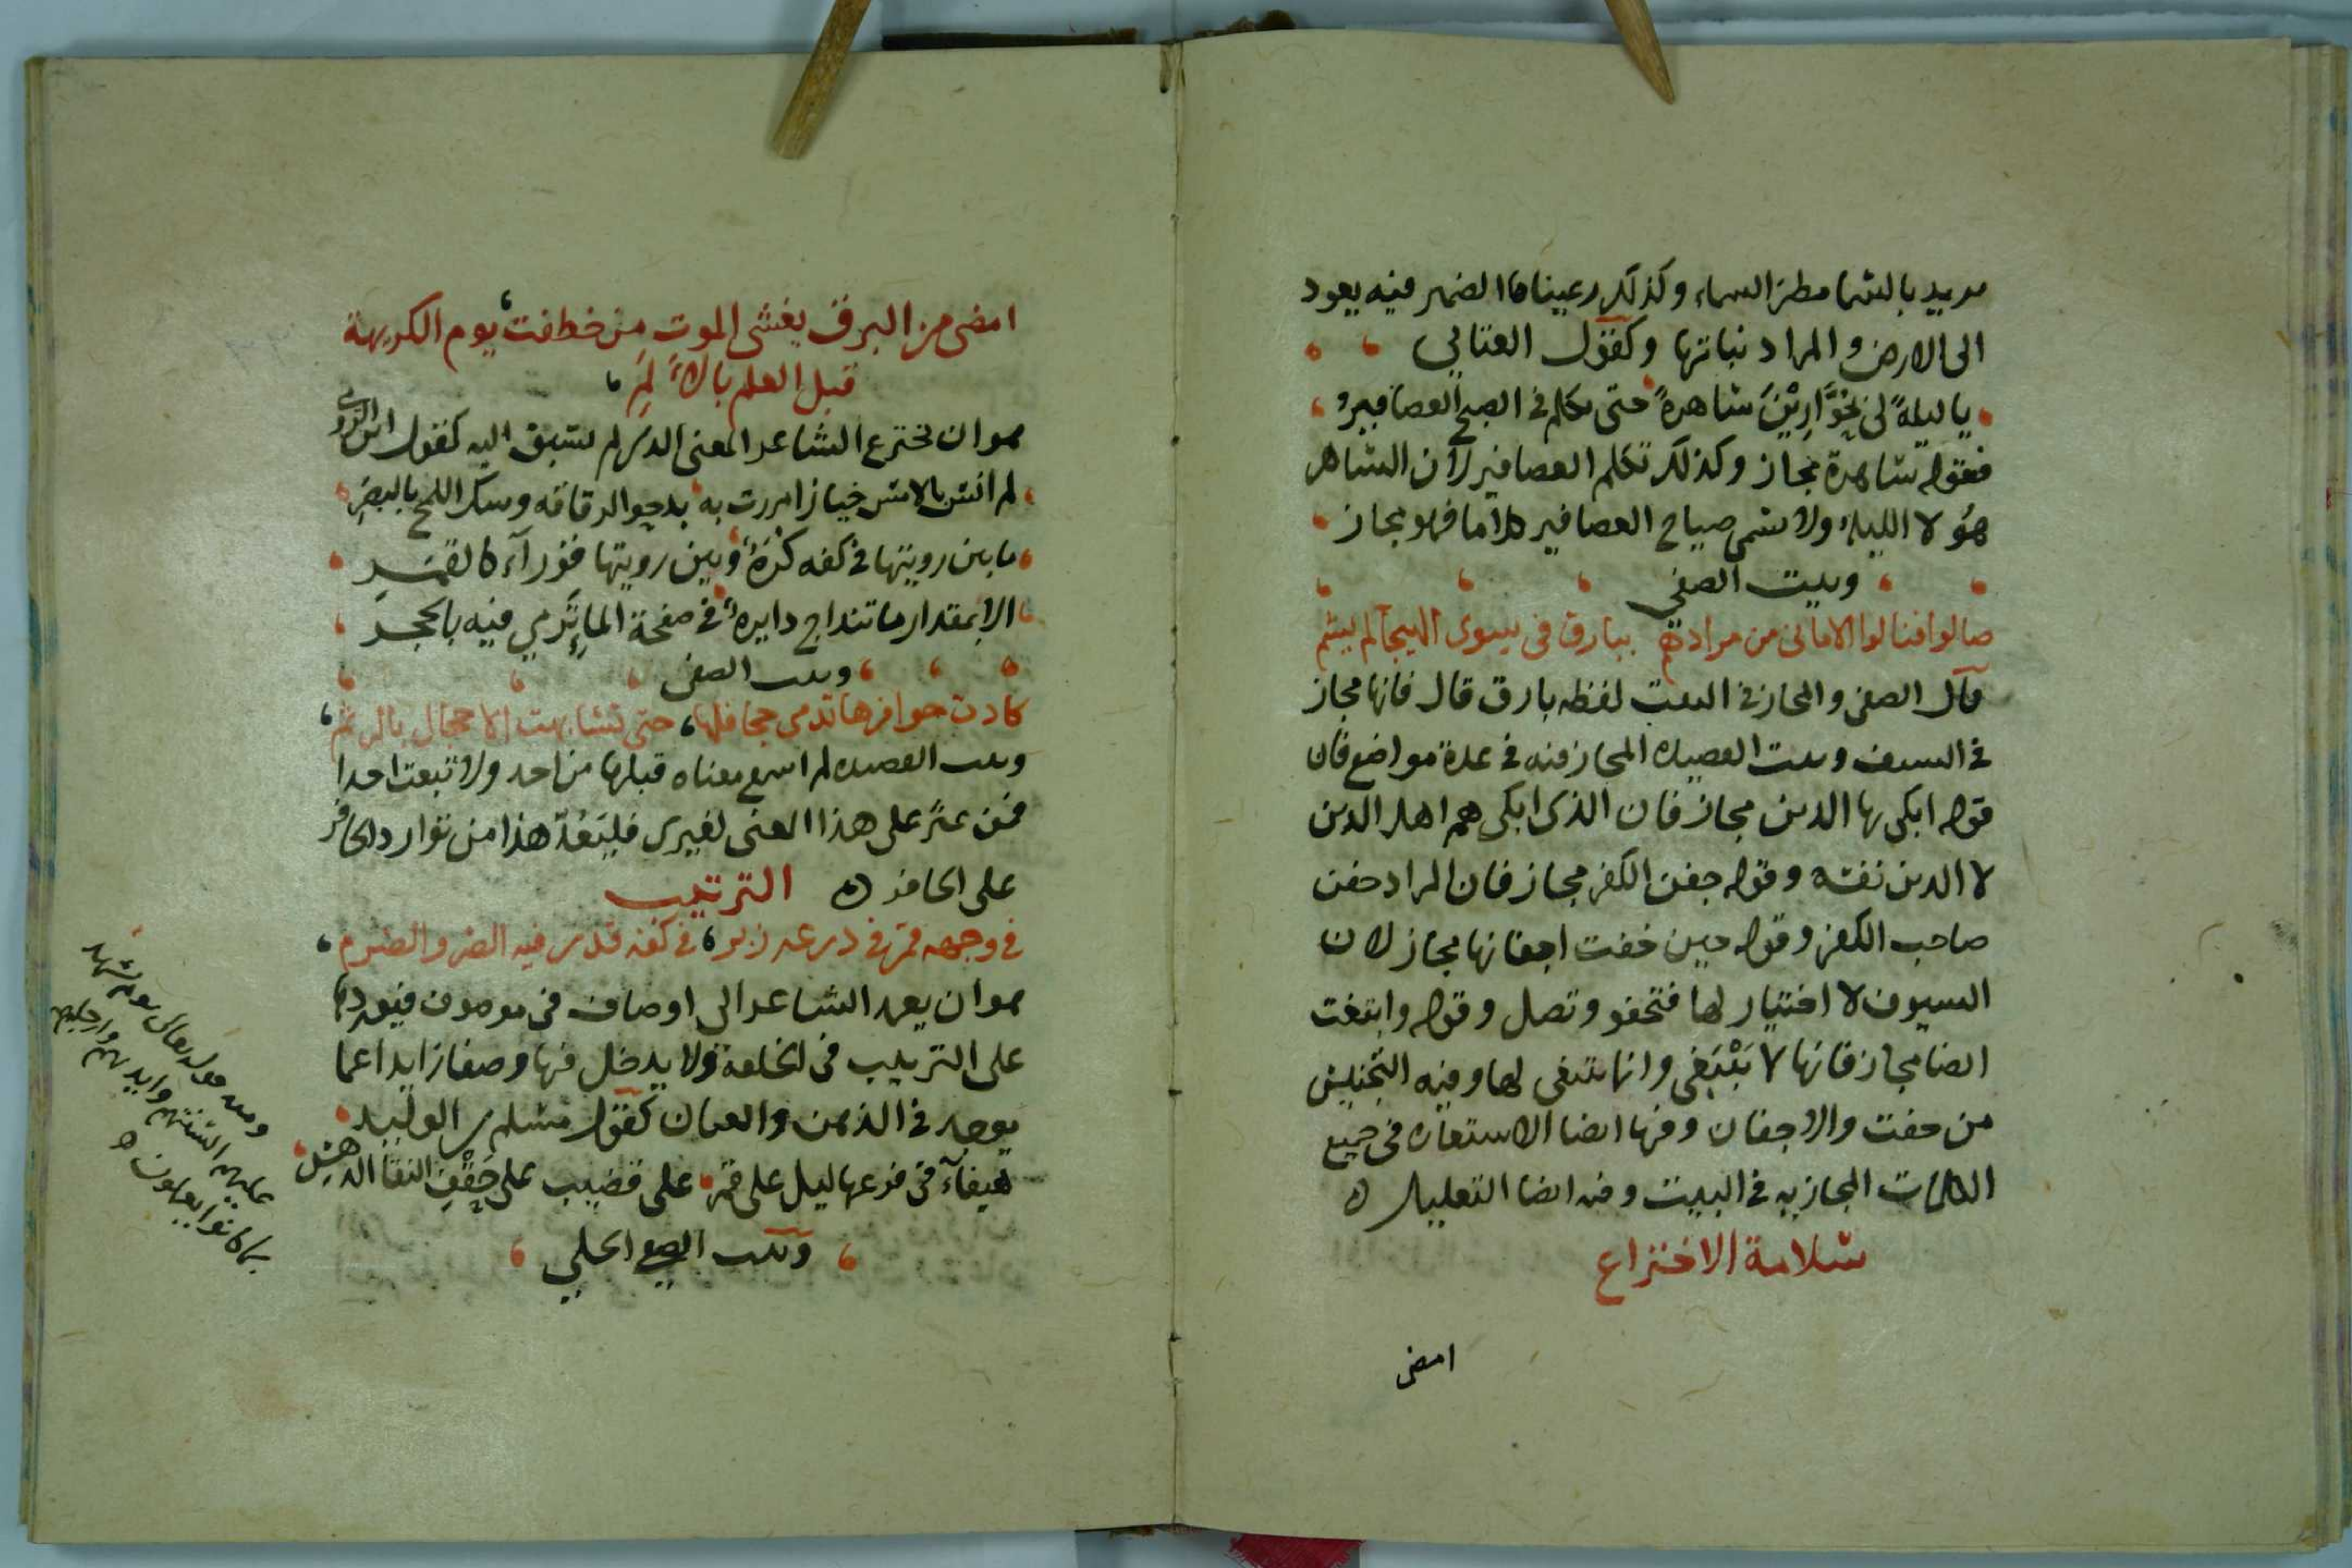 يريد بالسما مطر السماء وكذلك رعيناها الضمير فيه يعود
الى الارض والمراد نباتها وكقول العتابي
يا ليلة لى بحوارين ساهرة حتى تكلم في الصبح العصافير
فقوله ساهرة مجاز وكذلك تكلم العصافير لان الساهر
هو لا الليله ولا سمى صياح العصافير كلاما فهو مجاز
وبيت الصفي
صالوا فنالوا الامانى من مرادهم ببارق فى سوى الهيجا لم يشم
قال الصفى والمجاز في البيت لفظه بارق قال فانها مجاز
في السيف وبيت القصيده المجاز فيه في عدة مواضع فان
قوله ابكى بها الدين مجاز فان الذى ابكى هم اهل الدين
لا الدين نفسه وقوله جفن الكفر مجاز فان المراد جفن
صاحب الكفر وقوله حين خفت اجفانها مجاز لان
السيوف لا اختيار لها فتحفو وتصل وقوله وابتغت
ايضا مجاز فانها لا تبتغى وانما يبتغى لها وفيه التجنيس
من حفت والاجفان وفيها ايضا الاستعاره فى جميع
الكلمات المجازيه في البيت وفيه ايضا التعليل ه
سلامة الاختراع
امضى
امضى من البرق يغشى الموت من خطفت يوم الكريهة
قبل العلم بالالم
هو ان يخترع الشاعر المعنى الذى لم يسبق اليه كقول ابن الرومى
لم انس بالامس خبازا مررت به يدحو الرقاقه وسك اللمح بالبصر
ما بين رويتها في كفه كرة وبين رويتها قوراء كالقمر
الا بمقدار ما تنداح دايرة في صفحة الما يرمي فيه بالحجر
وبيت الصفى
كادت حوافرها تدمى جحافلها حتى تشابهت الاحجال بالرثم
وبيت القصيده لم اسمع معناه قبلها من احد ولا تبعت احدا
فمن عثر على هذا المعنى لغيرى فليعد هذا من توارد الحافر
على الحافر ه الترتيب
في وجهه قمر في درعه زبر في كفه قدر فيه الضر والضرم
هو ان يعمد الشاعر الى اوصاف فى موصوف فيوردها
على الترتيب فى الخلقة ولا يدخل فيها وصفا زايدا عما
يوجد في الذهن والعيان كقول مسلم بن الوليد
هيفاء في فرعها ليل على قمر على قضيب على حقف النقا الدهس
وبيت الصفى الحلي
ومنه قوله تعالى يوم تشهد
عليهم السنتهم وايديهم وارجلهم
بما كانوا يعملون ه